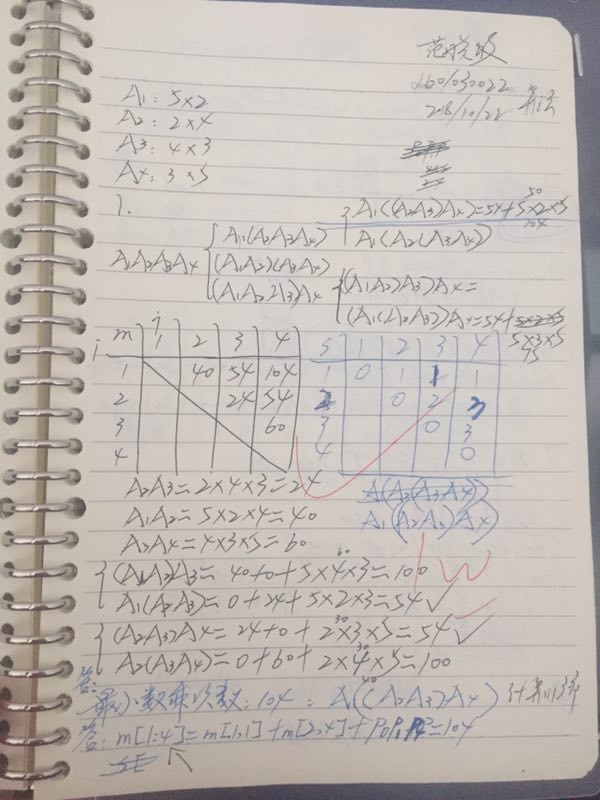 160/030022
218/10/22 算法
A1: 5×2
A2: 2×4
A3: 4×3
A4: 3×5
1.
A1((A2A3)A4)=54+5×2×5
50
104
A1(A2(A3A4))
A1A2A3A4
A1(A2A3A4)
(A1A2)(A3A4)
(A1A2A3)A4
((A1A2)A3)A4=
(A1(A2A3))A4=54+
5×3×5
m 1 2 3 4
1 40 54 104
2 24 54
3 60
4
i
j
S 1 2 3 4
1 0 1 1 1
2 0 2 3
3 0 3
4 0
A2A3=2×4×3=24
A1A2=5×2×4=40
A3A4=4×3×5=60
A(A2(A3A4))
A1((A2A3)A4)
60
(A1A2)A3=40+0+5×4×3=100
A1(A2A3)=0+24+5×2×3=54✓
30
(A2A3)A4=24+0+2×3×5=54✓
A2(A3A4)=0+60+2×4×5=100
40
答: 最小数乘次数:104: A1((A2A3)A4)
答: m[1:4]=m[1,1]+m[2,4]+P0P1P4=104